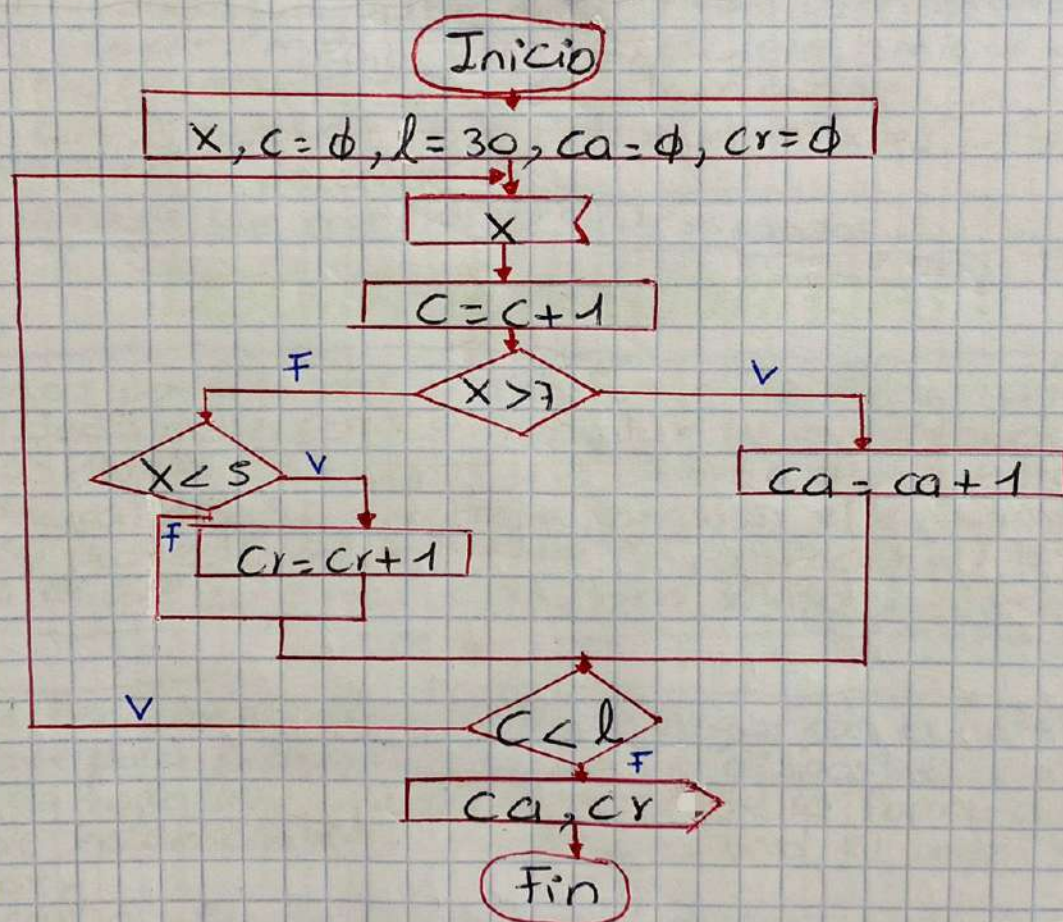 Inicio
X, C = ϕ, l = 30, Ca = ϕ, cr = ϕ
X
C = C + 1
F
X > 7
V
X < 5
V
Ca = ca + 1
F
Cr = Cr + 1
V
C < l
F
Ca, Cr
Fin